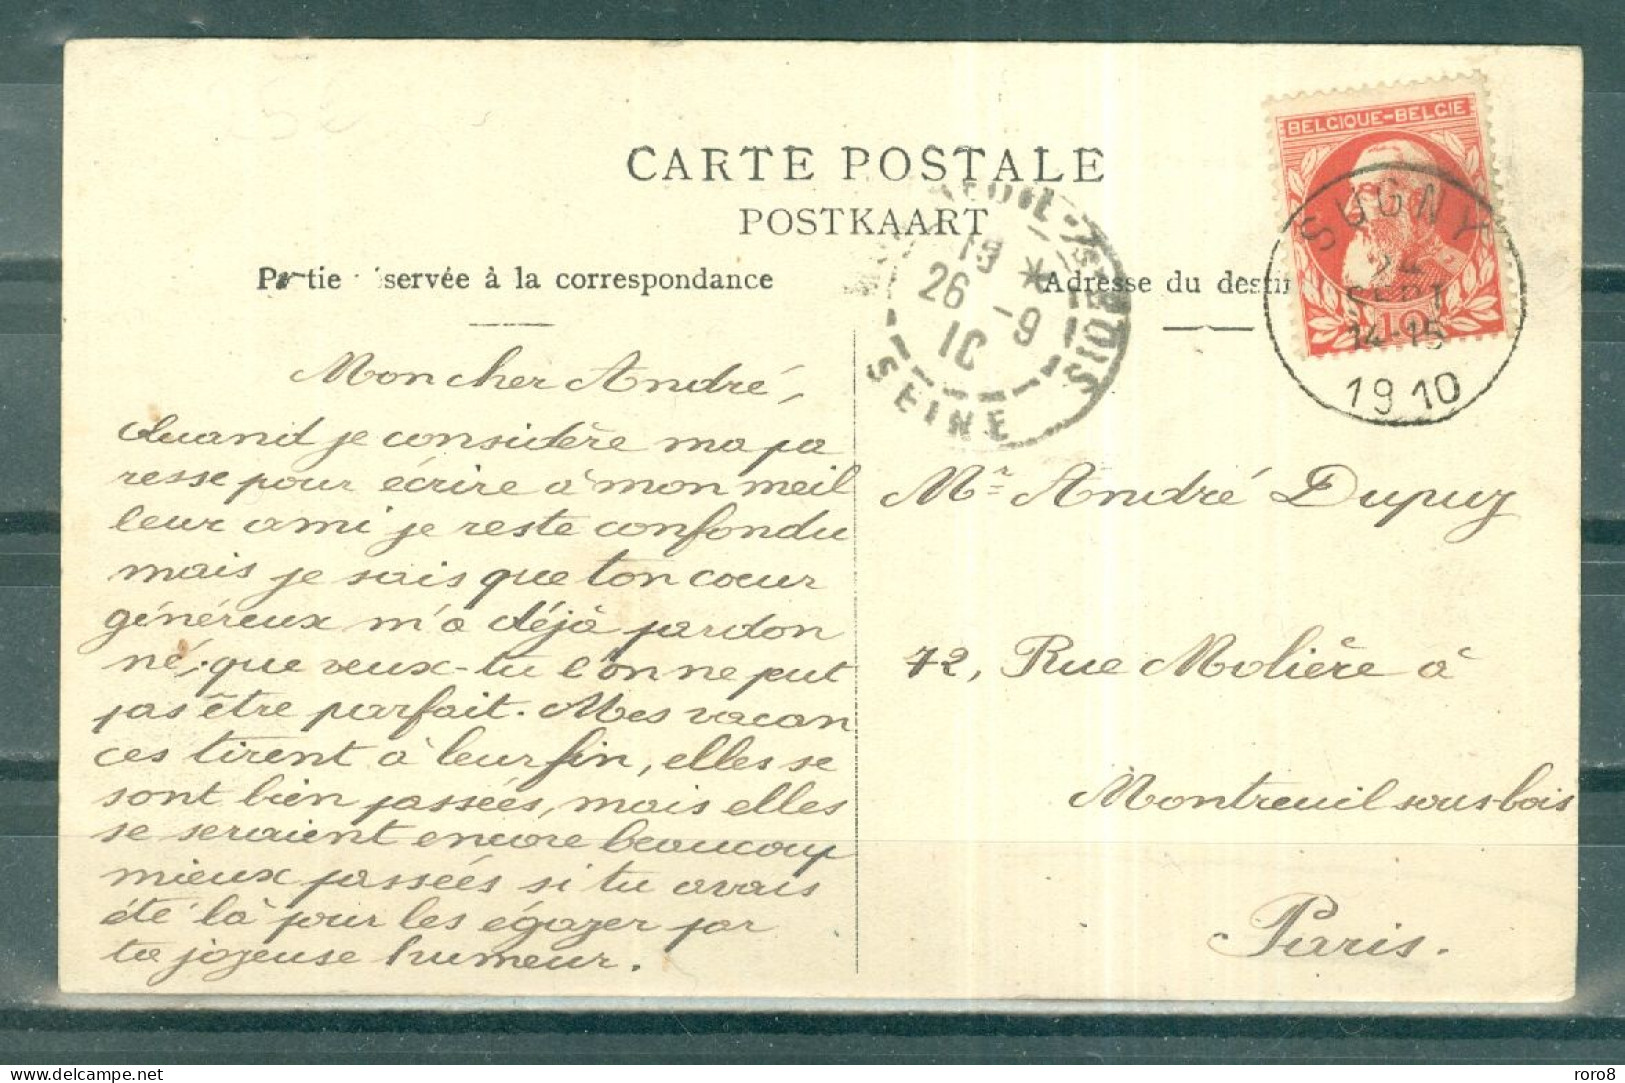 CARTE POSTALE
POSTKAART
Partie réservée à la correspondance
Adresse du destin
BELGIQUE-BELGIE
10
SUGNY
24
SEPT
14-15
1910
19 *
26 -9
10
SOUS-BOIS
SEINE
Mon cher André,
Quand je considère ma pa
resse pour écrire à mon meil
leur ami je reste confondu
mais je sais que ton cœur
généreux m'a déjà pardon
né; que veux-tu l'on ne peut
pas être parfait. Mes vacan
ces tirent à leur fin, elles se
sont bien passées, mais elles
se seraient encore beaucoup
mieux passées si tu avais
été là pour les égayer par
ta joyeuse humeur.
Mr André Dupuy
72, Rue Molière à
Montreuil sous-bois
Paris.
roro8